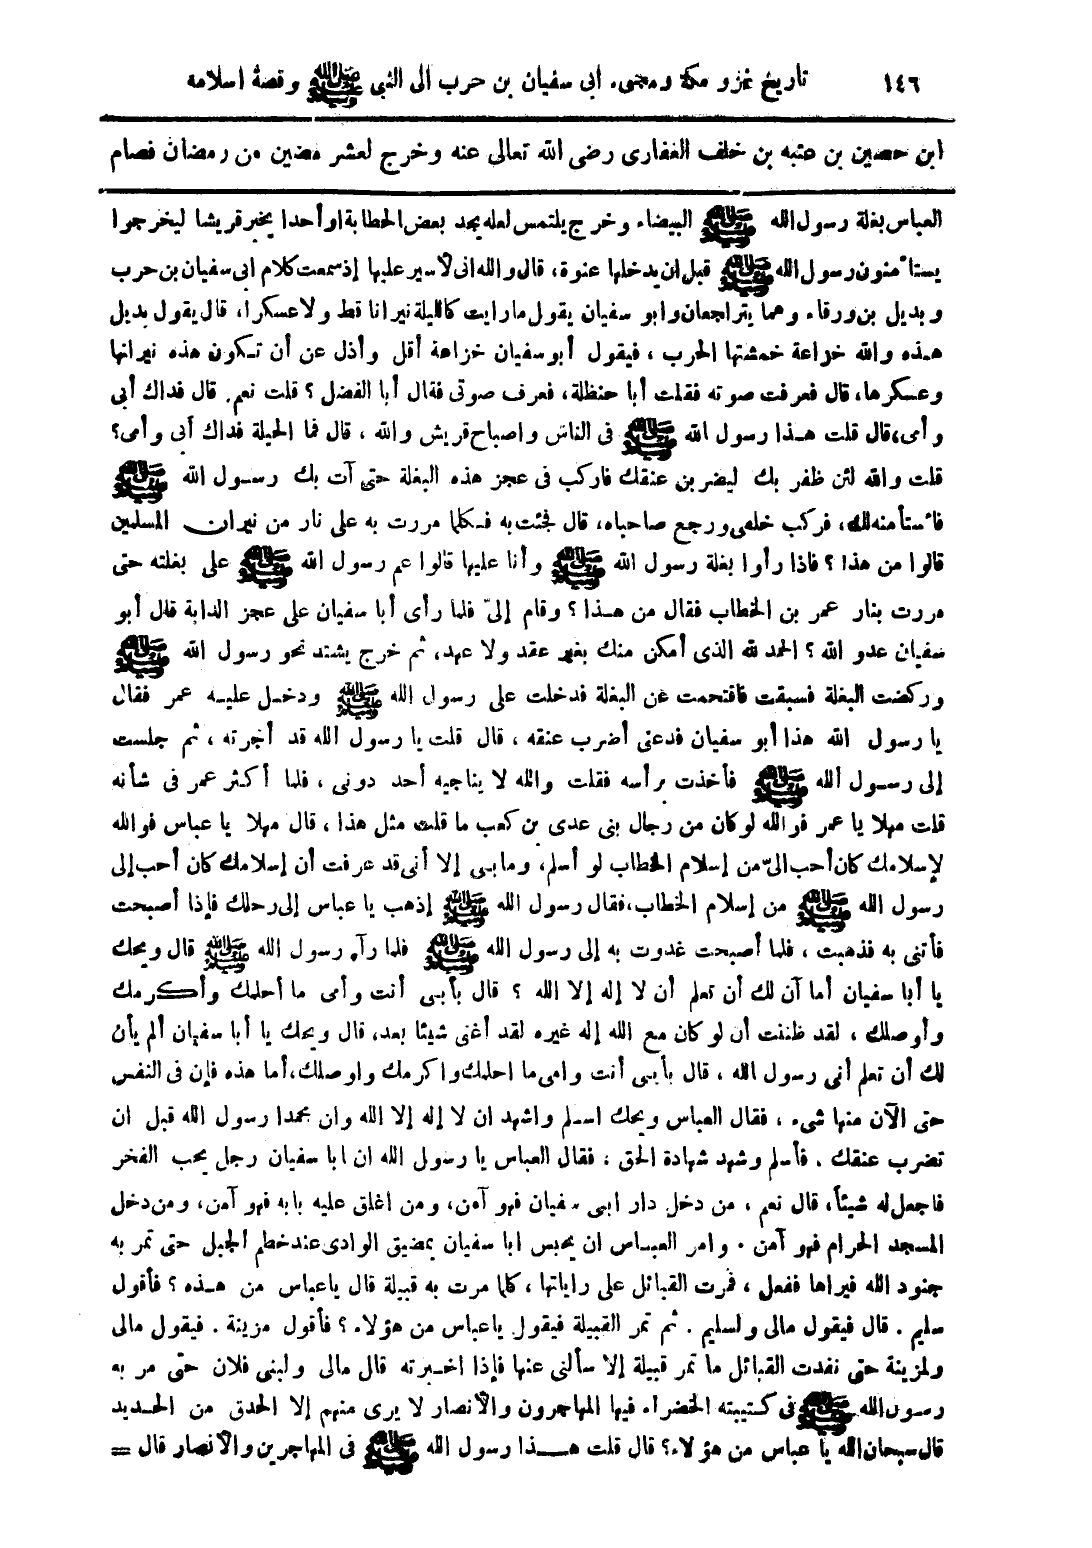 ١٤٦ تاريخ غزو مكة ومجىء أبي سفيان بن حرب الى النبي ﷺ وقصة اسلامه
ابن حصين بن عتبه بن خلف الغفارى رضى الله تعالى عنه وخرج لعشر مضين من رمضان فصام
العباس بغلة رسول الله ﷺ البيضاء وخرج يلتمس لعله يجد بعض الحطابة او أحدا يخبر قريشا ليخرجوا
يستأمنون رسول الله ﷺ قبل ان يدخلها عنوة، قال والله انى لأسير عليها إذ سمعت كلام ابى سفيان بن حرب
وبديل بن ورقاء وهما يتراجعان وابو سفيان يقول ما رايت كالليلة نيرانا قط ولا عسكرا، قال يقول بديل
هذه والله خزاعة خمشتها الحرب ، فيقول أبو سفيان خزاعة أقل وأذل عن أن تكون هذه نيرانها
وعسكرها، قال فعرفت صوته فقلت أبا حنظلة، فعرف صوتى فقال أبا الفضل ؟ قلت نعم. قال فداك أبى
وأمى، قال قلت هذا رسول الله ﷺ فى الناس واصباح قريش والله ، قال فما الحيلة فداك أبى وأمى؟
قلت والله لئن ظفر بك ليضربن عنقك فاركب فى عجز هذه البغلة حتى آت بك رسول الله ﷺ
فأستأمنه لك، فركب خلفى ورجع صاحباه، قال فجئت به فكلما مررت به على نار من نيران المسلمين
قالوا من هذا ؟ فاذا رأوا بغلة رسول الله ﷺ وأنا عليها قالوا عم رسول الله ﷺ على بغلته حتى
مررت بنار عمر بن الخطاب فقال من هذا ؟ وقام إلىّ فلما رأى أبا سفيان على عجز الدابة قال أبو
سفيان عدو الله ؟ الحمد لله الذى أمكن منك بغير عقد ولا عهد، ثم خرج يشتد نحو رسول الله ﷺ
وركضت البغلة فسبقت فاقتحمت عن البغلة فدخلت على رسول الله ﷺ ودخل عليه عمر فقال
يا رسول الله هذا أبو سفيان فدعنى أضرب عنقه ، قال قلت يا رسول الله قد أجرته ، ثم جلست
إلى رسول الله ﷺ فأخذت برأسه فقلت والله لا يناجيه أحد دونى ، فلما أكثر عمر فى شأنه
قلت مهلا يا عمر فوالله لو كان من رجال بنى عدى بن كعب ما قلت مثل هذا ، قال مهلا يا عباس فوالله
لإسلامك كان أحب الىّ من إسلام الخطاب لو أسلم، وما بى إلا أنى قد عرفت أن إسلامك كان أحب إلى
رسول الله ﷺ من إسلام الخطاب، فقال رسول الله ﷺ إذهب يا عباس إلى رحلك فإذا أصبحت
فأتنى به فذهبت ، فلما أصبحت غدوت به إلى رسول الله ﷺ فلما رآه رسول الله ﷺ قال ويحك
يا أبا سفيان أما آن لك أن تعلم أن لا إله إلا الله ؟ قال بأبى أنت وأمى ما أحلمك وأكرمك
وأوصلك ، لقد ظننت أن لو كان مع الله إله غيره لقد أغنى شيئا بعد، قال ويحك يا أبا سفيان ألم يأن
لك أن تعلم أنى رسول الله ، قال بأبى أنت وامى ما احلمك واكرمك واوصلك، أما هذه فإن فى النفس
حتى الآن منها شىء ، فقال العباس ويحك اسلم واشهد ان لا إله إلا الله وان محمدا رسول الله قبل ان
تضرب عنقك . فأسلم وشهد شهادة الحق ، فقال العباس يا رسول الله ان ابا سفيان رجل يحب الفخر
فاجعل له شيئاً، قال نعم ، من دخل دار ابى سفيان فهو آمن، ومن اغلق عليه بابه فهو آمن، ومن دخل
المسجد الحرام فهو آمن . وامر العباس ان يحبس ابا سفيان بمضيق الوادى عند خطم الجبل حتى تمر به
جنود الله فيراها ففعل ، فمرت القبائل على راياتها ، كلما مرت به قبيلة قال يا عباس من هذه ؟ فأقول
سليم . قال فيقول مالى ولسليم . ثم تمر القبيلة فيقول يا عباس من هؤلاء ؟ فأقول مزينة . فيقول مالى
ولمزينة حتى نفدت القبائل ما تمر قبيلة إلا سألنى عنها فإذا اخبرته قال مالى ولبنى فلان حتى مر به
رسول الله ﷺ فى كتيبته الخضراء فيها المهاجرون والأنصار لا يرى منهم إلا الحدق من الحديد
قال سبحان الله يا عباس من هؤلاء؟ قال قلت هذا رسول الله ﷺ فى المهاجرين والأنصار قال =